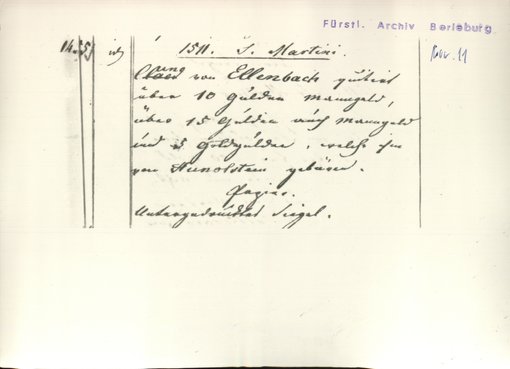 Fürstl. Archiv Berleburg
Nov. 11
1511. S. Martini.
von Ellenbach quitirt
über 10 Gulden Manngeld,
über 15 Gulden auch Manngeld
und 5 Goldgulden, welche ihm
von Hunolstein gebüren.
Papier.
Untergedrücktes Siegel.